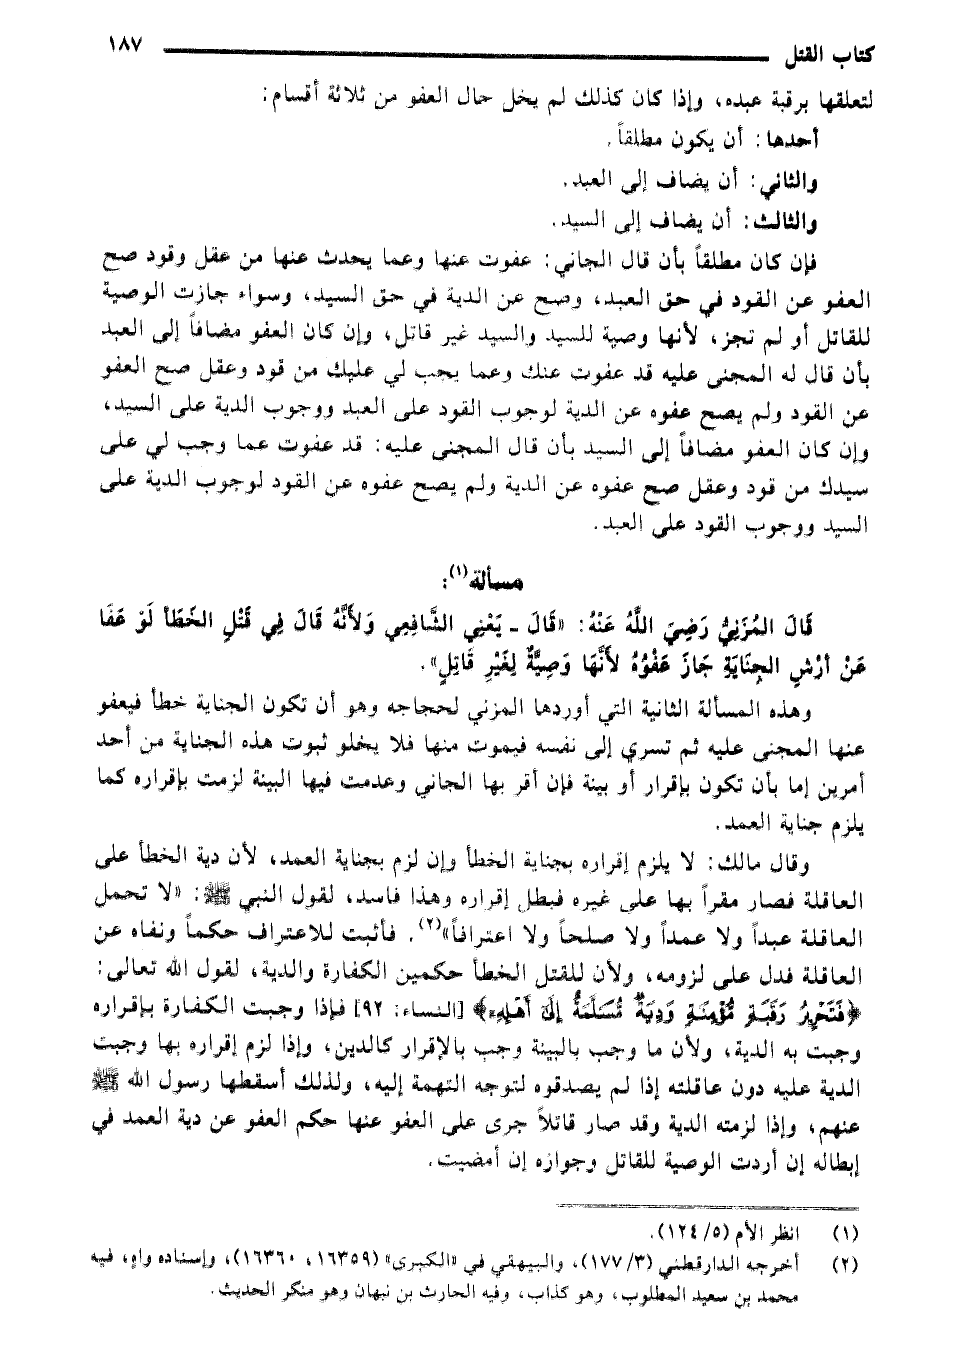 كتاب القتل ١٨٧
لتعلقها برقبة عبده، وإذا كان كذلك لم يخل حال العفو من ثلاثة أقسام:
أحدها: أن يكون مطلقاً.
والثاني: أن يضاف إلى العبد.
والثالث: أن يضاف إلى السيد.
فإن كان مطلقاً بأن قال الجاني: عفوت عنها وعما يحدث عنها من عقل وقود صح
العفو عن القود في حق العبد، وصح عن الدية في حق السيد، وسواء جازت الوصية
للقاتل أو لم تجز، لأنها وصية للسيد والسيد غير قاتل، وإن كان العفو مضافاً إلى العبد
بأن قال له المجنى عليه قد عفوت عنك وعما يجب لي عليك من قود وعقل صح العفو
عن القود ولم يصح عفوه عن الدية لوجوب القود على العبد ووجوب الدية على السيد،
وإن كان العفو مضافاً إلى السيد بأن قال المجنى عليه: قد عفوت عما وجب لي على
سيدك من قود وعقل صح عفوه عن الدية ولم يصح عفوه عن القود لوجوب الدية على
السيد ووجوب القود على العبد.
مسألة(١):
قَالَ المُزَنِيُّ رَضِيَ اللَّهُ عَنْهُ: «قَالَ ـ يَعْنِي الشَّافِعِي وَلأَنَّهُ قَالَ فِي قَتْلِ الخَطَأ لَوْ عَفَا
عَنْ أَرْشِ الجِنَايَةِ جَازَ عَفْوُهُ لأَنَّهَا وَصِيَّةٌ لِغَيْرِ قَاتِلٍ».
وهذه المسألة الثانية التي أوردها المزني لحجاجه وهو أن تكون الجناية خطأ فيعفو
عنها المجنى عليه ثم تسري إلى نفسه فيموت منها فلا يخلو ثبوت هذه الجناية من أحد
أمرين إما بأن تكون بإقرار أو بينة فإن أقر بها الجاني وعدمت فيها البينة لزمت بإقراره كما
يلزم جناية العمد.
وقال مالك: لا يلزم إقراره بجناية الخطأ وإن لزم بجناية العمد، لأن دية الخطأ على
العاقلة فصار مقراً بها على غيره فبطل إقراره وهذا فاسد، لقول النبي ﷺ: «لا تحمل
العاقلة عبداً ولا عمداً ولا صلحاً ولا اعترافاً»(٢). فأثبت للاعتراف حكماً ونفاه عن
العاقلة فدل على لزومه، ولأن للقتل الخطأ حكمين الكفارة والدية، لقول الله تعالى:
﴿فَتَحْرِيرُ رَقَبَةٍ مُّؤْمِنَةٍ وَدِيَةٌ مُّسَلَّمَةٌ إِلَىٰ أَهْلِهِ﴾ [النساء: ٩٢] فإذا وجبت الكفارة بإقراره
وجبت به الدية، ولأن ما وجب بالبينة وجب بالإقرار كالدين، وإذا لزم إقراره بها وجبت
الدية عليه دون عاقلته إذا لم يصدقوه لتوجه التهمة إليه، ولذلك أسقطها رسول الله ﷺ
عنهم، وإذا لزمته الدية وقد صار قاتلاً جرى على العفو عنها حكم العفو عن دية العمد في
إبطاله إن أردت الوصية للقاتل وجوازه إن أمضيت.
(١) انظر الأم (٥/ ١٢٤).
(٢) أخرجه الدارقطني (٣/ ١٧٧)، والبيهقي في «الكبرى» (١٦٣٥٩، ١٦٣٦٠)، وإسناده واهٍ، فيه
محمد بن سعيد المطلوب، وهو كذاب، وفيه الحارث بن نبهان وهو منكر الحديث.